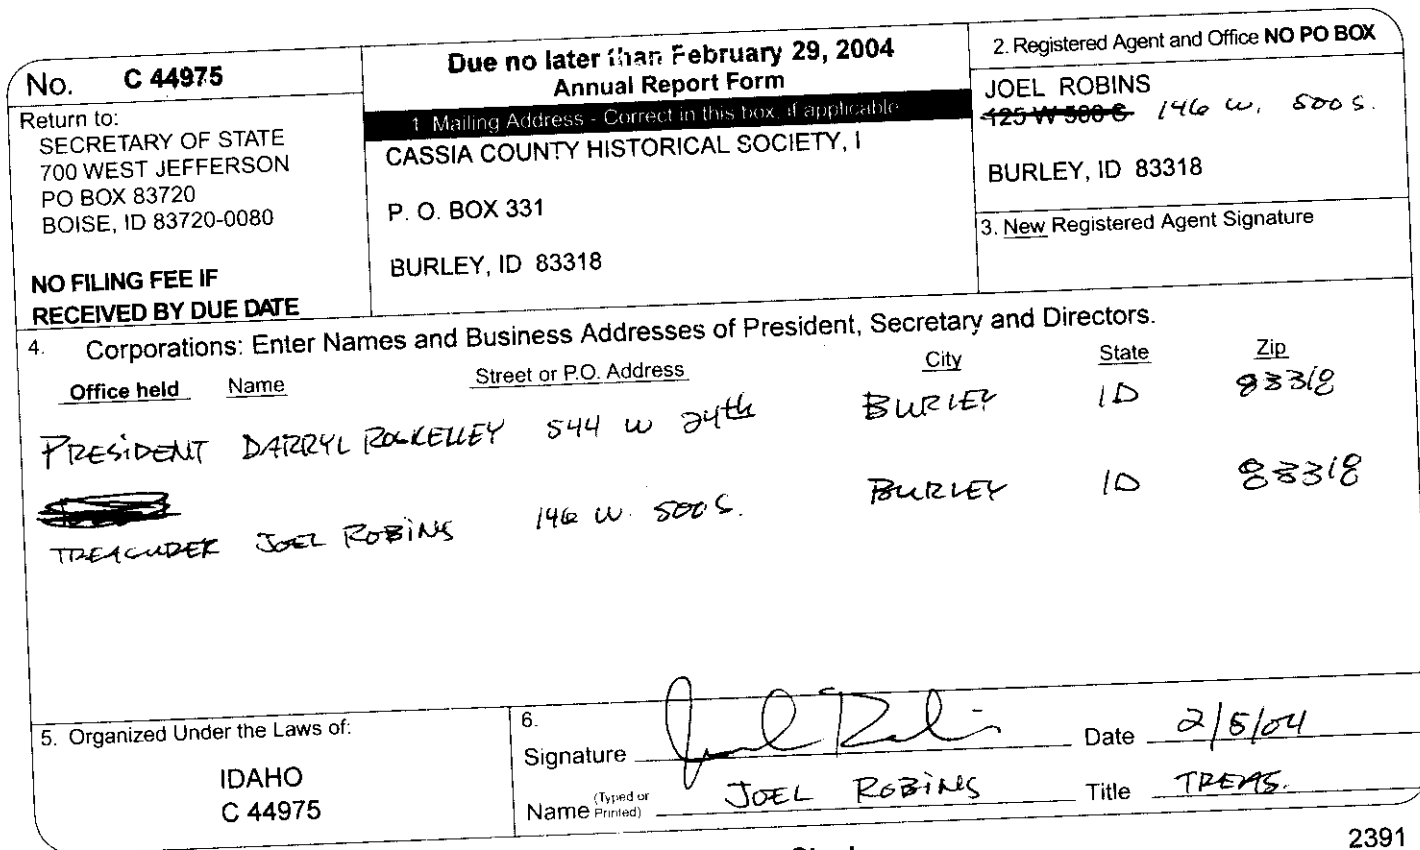 No. C 44975
Return to:
SECRETARY OF STATE
700 WEST JEFFERSON
PO BOX 83720
BOISE, ID 83720-0080
NO FILING FEE IF
RECEIVED BY DUE DATE
Due no later than February 29, 2004
Annual Report Form
1. Mailing Address - Correct in this box, if applicable
CASSIA COUNTY HISTORICAL SOCIETY, I
P. O. BOX 331
BURLEY, ID 83318
2. Registered Agent and Office NO PO BOX
JOEL ROBINS
125 W 500 S 146 W. 500 S.
BURLEY, ID 83318
3. New Registered Agent Signature
4. Corporations: Enter Names and Business Addresses of President, Secretary and Directors.
Office held Name Street or P.O. Address City State Zip
PRESIDENT DARRYL 544 W 24th BURLEY ID 83318
TREASURER JOEL ROBINS 146 W. 500 S. BURLEY ID 83318
5. Organized Under the Laws of:
IDAHO
C 44975
6.
Signature Date 2/5/04
Name (Typed or Printed) JOEL ROBINS Title TREAS.
2391